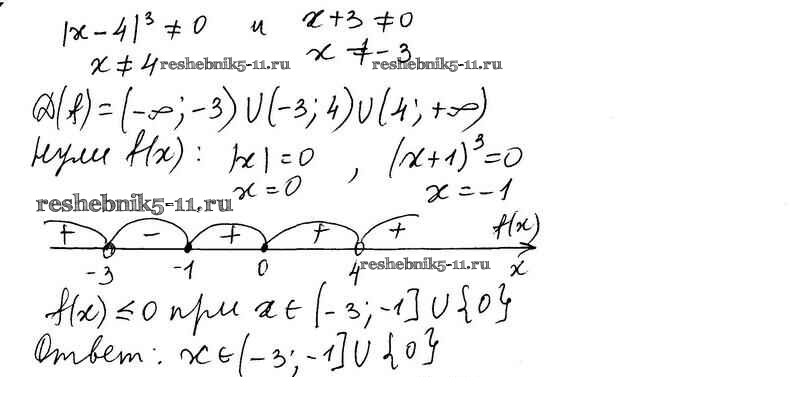 |x-4|³≠0 и x+3≠0
x≠4 reshebnik5-11.ru x≠-3 reshebnik5-11.ru
D(f)=(-∞;-3)∪(-3;4)∪(4;+∞)
Нули f(x): |x|=0, (x+1)³=0
x=0 x=-1
reshebnik5-11.ru
+ - + + + f(x)
-3 -1 0 4 reshebnik5-11.ru x
f(x)≤0 при x∈(-3;-1]∪{0}
Ответ: x∈(-3;-1]∪{0}